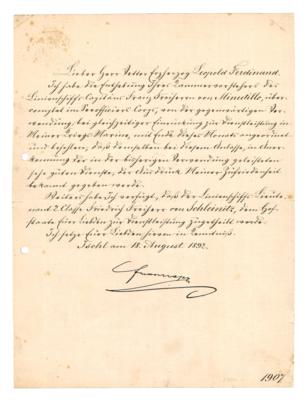 Lieber Herr Vetter Erzherzog Leopold Ferdinand.
Ich habe die Enthebung Ihres Kammervorstehers des
Linienschiffs-Capitäns Franz Freiherrn von Minutillo, über-
complet im Seeofficiers-Corps, von der gegenwärtigen Ver-
wendung, bei gleichzeitiger Einrückung zur Dienstleistung in
Meiner Kriegs-Marine, mit Ende dieses Monats angeordnet
und befohlen, daß demselben bei diesem Anlasse, in Aner-
kennung der in der bisherigen Verwendung geleisteten
sehr guten Dienste, der Ausdruck Meiner Zufriedenheit
bekannt gegeben werde.
Weiters habe Ich verfügt, daß der Linienschiffs-Lieute-
nant 2. Classe Friedrich Freiherr von Schleinitz, dem Hof-
staate Euer Liebden zur Dienstleistung zugetheilt werde.
Ich setze Euer Liebden hievon in Kenntniß.
Ischl am 18. August 1892.
1907